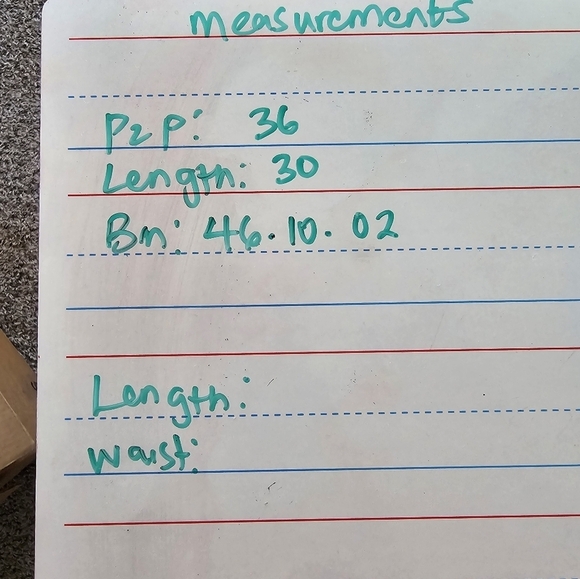 measurements
P2P: 36
Length: 30
Bn: 46.10.02
Length:
Waist: